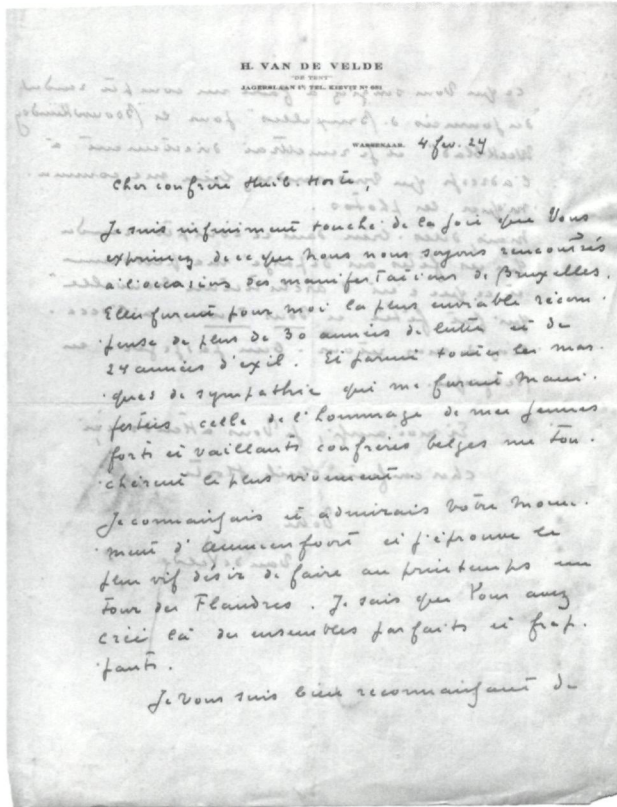 H. VAN DE VELDE
"DE TENT"
JAGERSLAAN 1, TEL. KIEVIT No 681
WASSENAAR. 4 fev. 24
Cher confrère Huib Hoste,
Je suis infiniment touché de la joie que Vous
exprimez de ce que nous nous soyons rencontrés
à l'occasion des manifestations de Bruxelles.
Elles furent pour moi la plus enviable récom-
pense de plus de 30 années de lutte et de
24 années d'exil. Et parmi toutes les mar-
ques de sympathie qui me furent mani-
festées celle de l'hommage de mes jeunes
forts et vaillants confrères belges me tou-
chèrent le plus vivement.
Je connaissais et admirais votre monu-
ment d' et j'éprouve le
plus vif désir de faire au printemps un
tour des Flandres. Je sais que Vous avez
créé là des ensembles parfaits et frap-
pants.
Je vous suis bien reconnaissant de